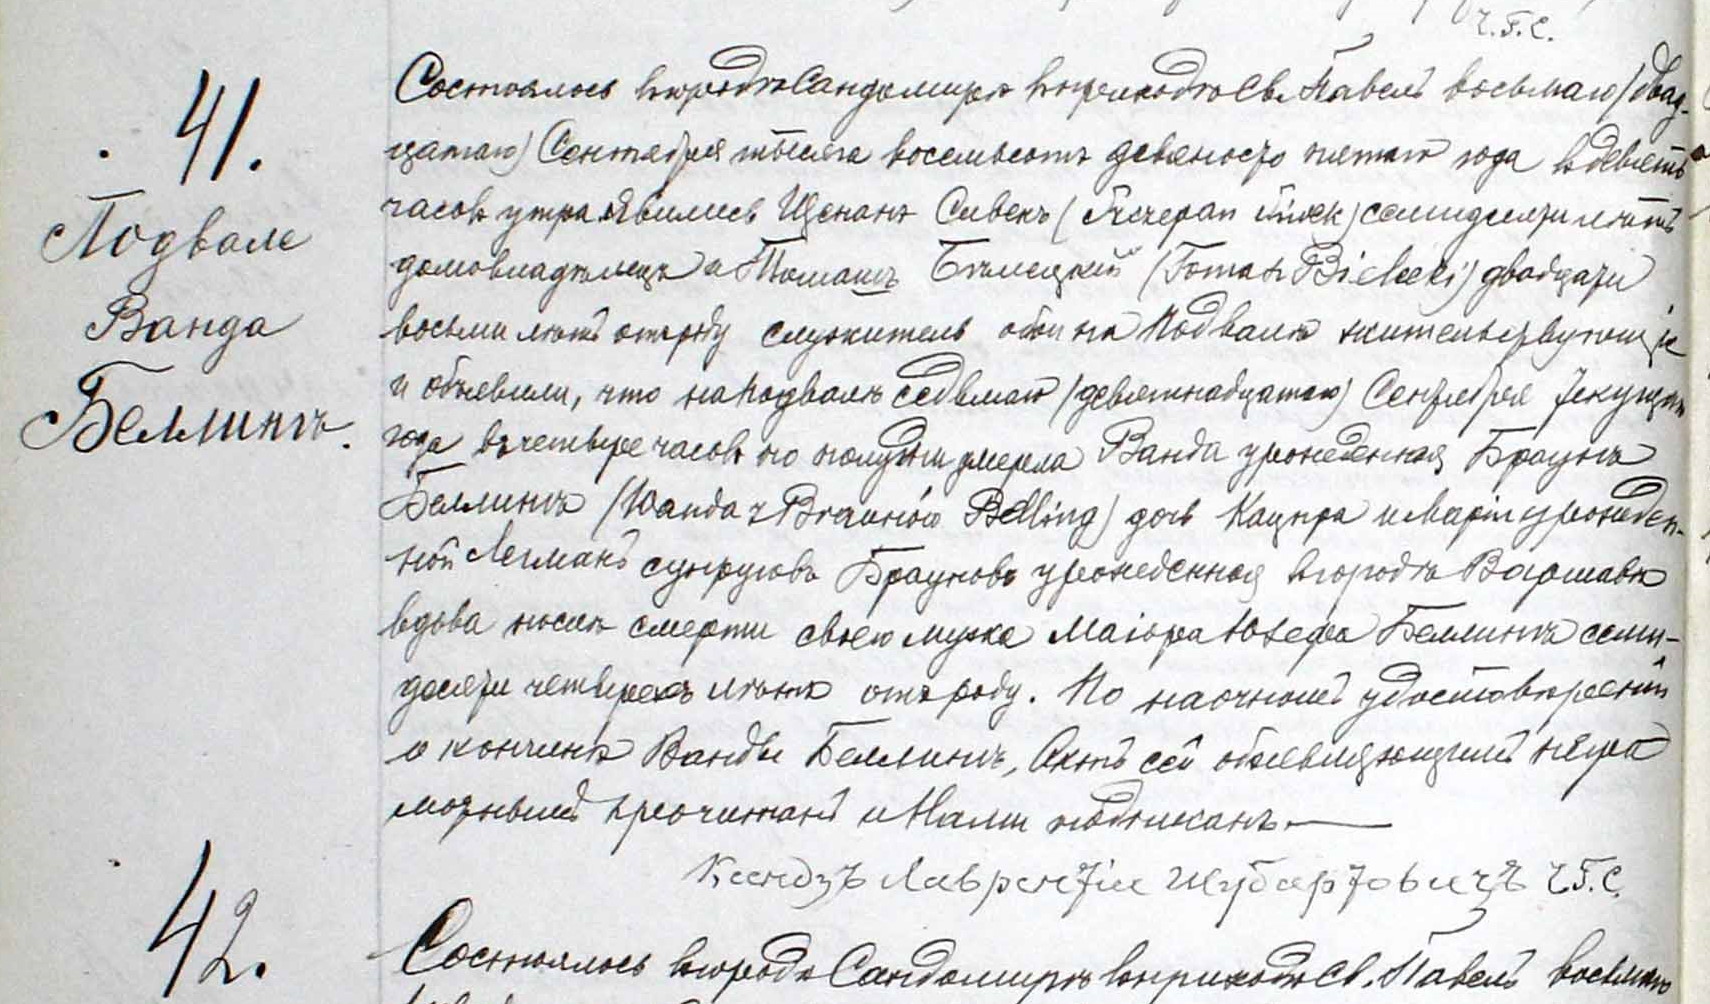 Ч.Б.С.
41.
Подвале
Ванда
Беллингъ.
Состоялось въ городѣ Сандомирѣ въ приходѣ Св. Павелъ восьмаго /двад-
цатаго/ Сентября тысяча восемьсотъ девяносто пятаго года въ девять
часовъ утра Явились Щепанъ Сивекъ (Szczepan Siwek) семидесяти лѣтъ
домовладѣлецъ и Томашъ Бѣлецкій (Tomasz Bielecki) двадцати
восьми лѣтъ отъ роду служитель оба на Подвалѣ жительствующіе
и объявили, что на Подвалѣ седьмаго /девятнадцатаго/ Сентября текущаго
года въ четыре часовъ по полудни умерла Ванда урожденная Браунъ
Беллингъ /Wanda z Braunów Belling/ дочь Кацпра и Маріи урожден-
ной Легманъ супруговъ Брауновъ урожденная въ городѣ Варшавѣ
вдова послѣ смерти своего мужа Маіора Юзефа Беллингъ семи-
десяти четырехъ лѣтъ отъ роду. По наочномъ удостовѣреніи
о кончинѣ Ванды Беллингъ, Актъ сей объявляющимъ неграмотнымъ
прочитанъ и Нами подписанъ.—
Ксендзъ Лаврентій Шубартовичъ Ч.Б.С.
42.
Состоялось въ городѣ Сандомирѣ въ приходѣ Св. Павелъ восьмаго